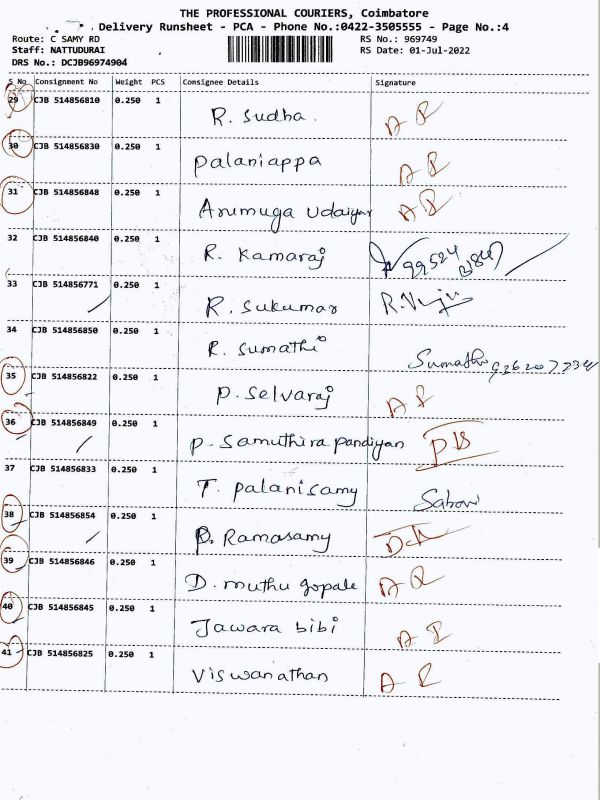 THE PROFESSIONAL COURIERS, Coimbatore
Delivery Runsheet - PCA - Phone No.:0422-3505555 - Page No.:4
Route: C SAMY RD RS No.: 969749
Staff: NATTUDURAI RS Date: 01-Jul-2022
DRS No.: DCJB96974904
S No Consignment No Weight PCS Consignee Details Signature
29 CJB 514856810 0.250 1 R. Sudha A R
30 CJB 514856830 0.250 1 Palaniappa A R
31 CJB 514856848 0.250 1 Arumuga Udaiyar A R
32 CJB 514856840 0.250 1 R. Kamaraj 99524
33 CJB 514856771 0.250 1 R. Sukumar
34 CJB 514856850 0.250 1 R. Sumathi Sumathi
35 CJB 514856822 0.250 1 P. Selvaraj A R
36 CJB 514856849 0.250 1 P. Samuthira pandiyan
37 CJB 514856833 0.250 1 T. Palanisamy
38 CJB 514856854 0.250 1 P. Ramasamy
39 CJB 514856846 0.250 1 D. Muthu gopale A R
40 CJB 514856845 0.250 1 Jawara bibi A R
41 CJB 514856825 0.250 1 Viswanathan A R